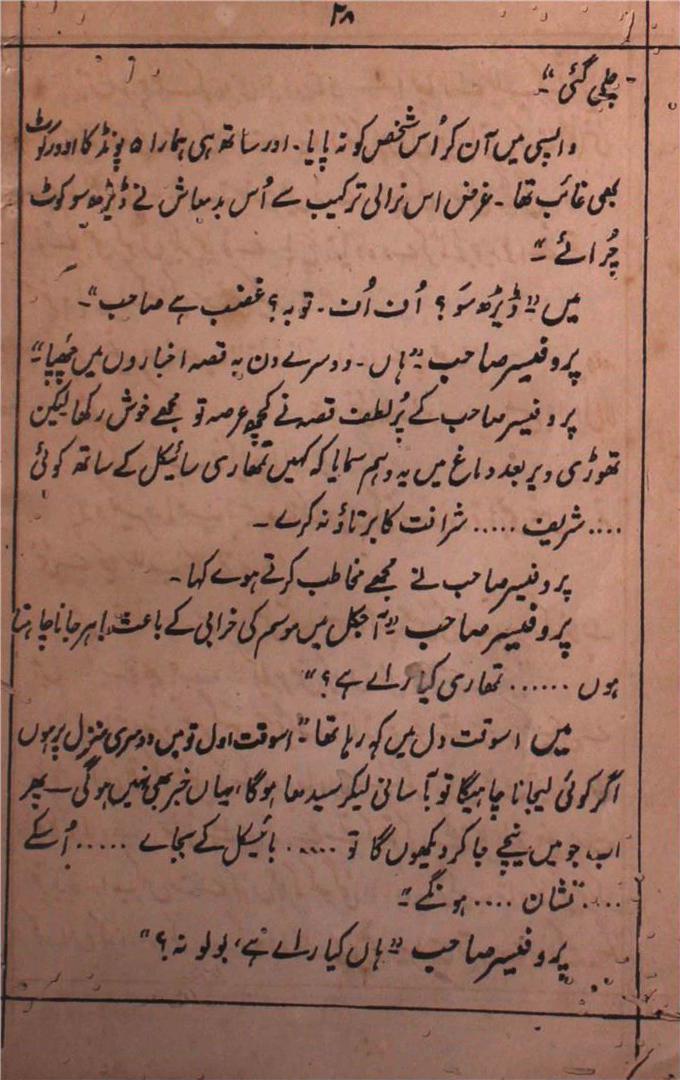 ۲۸
چلی گئی“۔
واپسی میں آن کر اُس شخص کو نہ پایا۔ اور ساتھ ہی ہمارا ۵ پونڈ کا اوورکوٹ
بھی غائب تھا۔ غرض اس نرالی ترکیب سے اُس بدمعاش نے ڈیڑھ سو کوٹ
چُرائے“۔
میں ”ڈیڑھ سَو؟ اُن اُن۔ توبہ؟ غضب ہے صاحب“۔
پروفیسر صاحب ”ہاں۔ دوسرے دن یہ قصہ اخباروں میں چُھپا“
پروفیسر صاحب کے پُر لطف قصہ نے کچھ عرصہ تو مجھے خوش رکھا لیکن
تھوڑی دیر بعد دماغ میں یہ وہم سمایا کہ کہیں تمھاری سائیکل کے ساتھ کوئی
.... شریف ..... شرافت کا برتاؤ نہ کرے۔
پروفیسر صاحب نے مجھے مخاطب کرتے ہوے کہا۔
پروفیسر صاحب ”آجکل میں موسم کی خرابی کے باعث باہر جانا چاہتا
ہوں ...... تمھاری کیا راے ہے؟“
میں اسوقت دل میں کہ رہا تھا ”اسوقت اول تو میں دوسری منزل پر ہوں
اگر کوئی لیجانا چاہیگا تو بآسانی لیکر سیدھا ہوگا، یہاں خبر بھی نہیں ہوگی۔ پھر
اب جو میں نیچے جا کر دیکھوں گا تو ..... بائیکل کے بجاے ..... اُسکے
.... نشان .... ہونگے“۔
پروفیسر صاحب ”ہاں کیا راے ہے، بولو نہ؟“